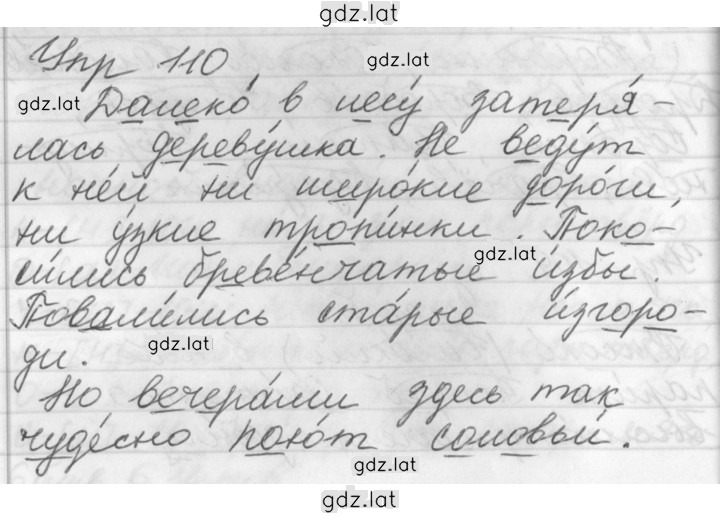 gdz.lat
Упр 110
gdz.lat
gdz.lat
Далеко́ в лесу́ затеря́-
лась дереву́шка. Не веду́т
к не́й ни широ́кие доро́ги,
ни у́зкие тропи́нки. Поко-
gdz.lat
си́лись бреве́нчатые и́збы.
Повали́лись ста́рые и́згоро-
gdz.lat
ди.
Но вечера́ми здесь так
чуде́сно пою́т соловьи́.
gdz.lat
gdz.lat